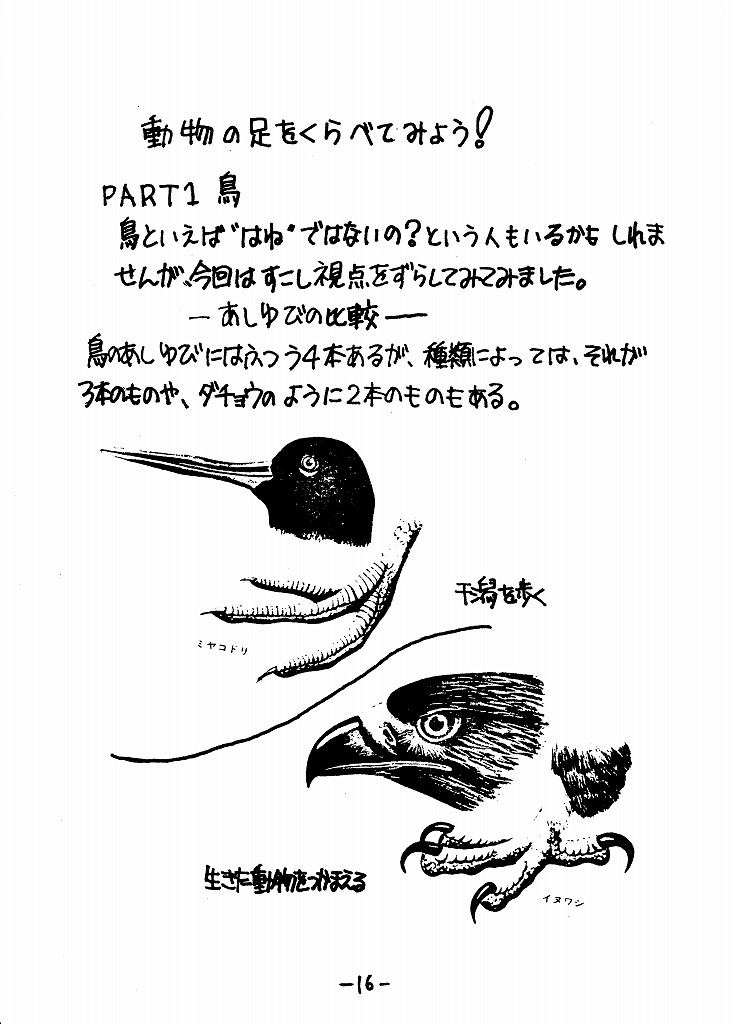 動物の足をくらべてみよう!
PART1 鳥
鳥といえば"はね"ではないの?という人もいるかも しれま
せんが、今回はすこし視点をずらしてみてみました。
—あしゆびの比較—
鳥のあしゆびにはふつう4本あるが、種類によっては、それが
3本のものや、ダチョウのように2本のものもある。
干潟を歩く
ミヤコドリ
生きた動物をつかまえる
イヌワシ
-16-